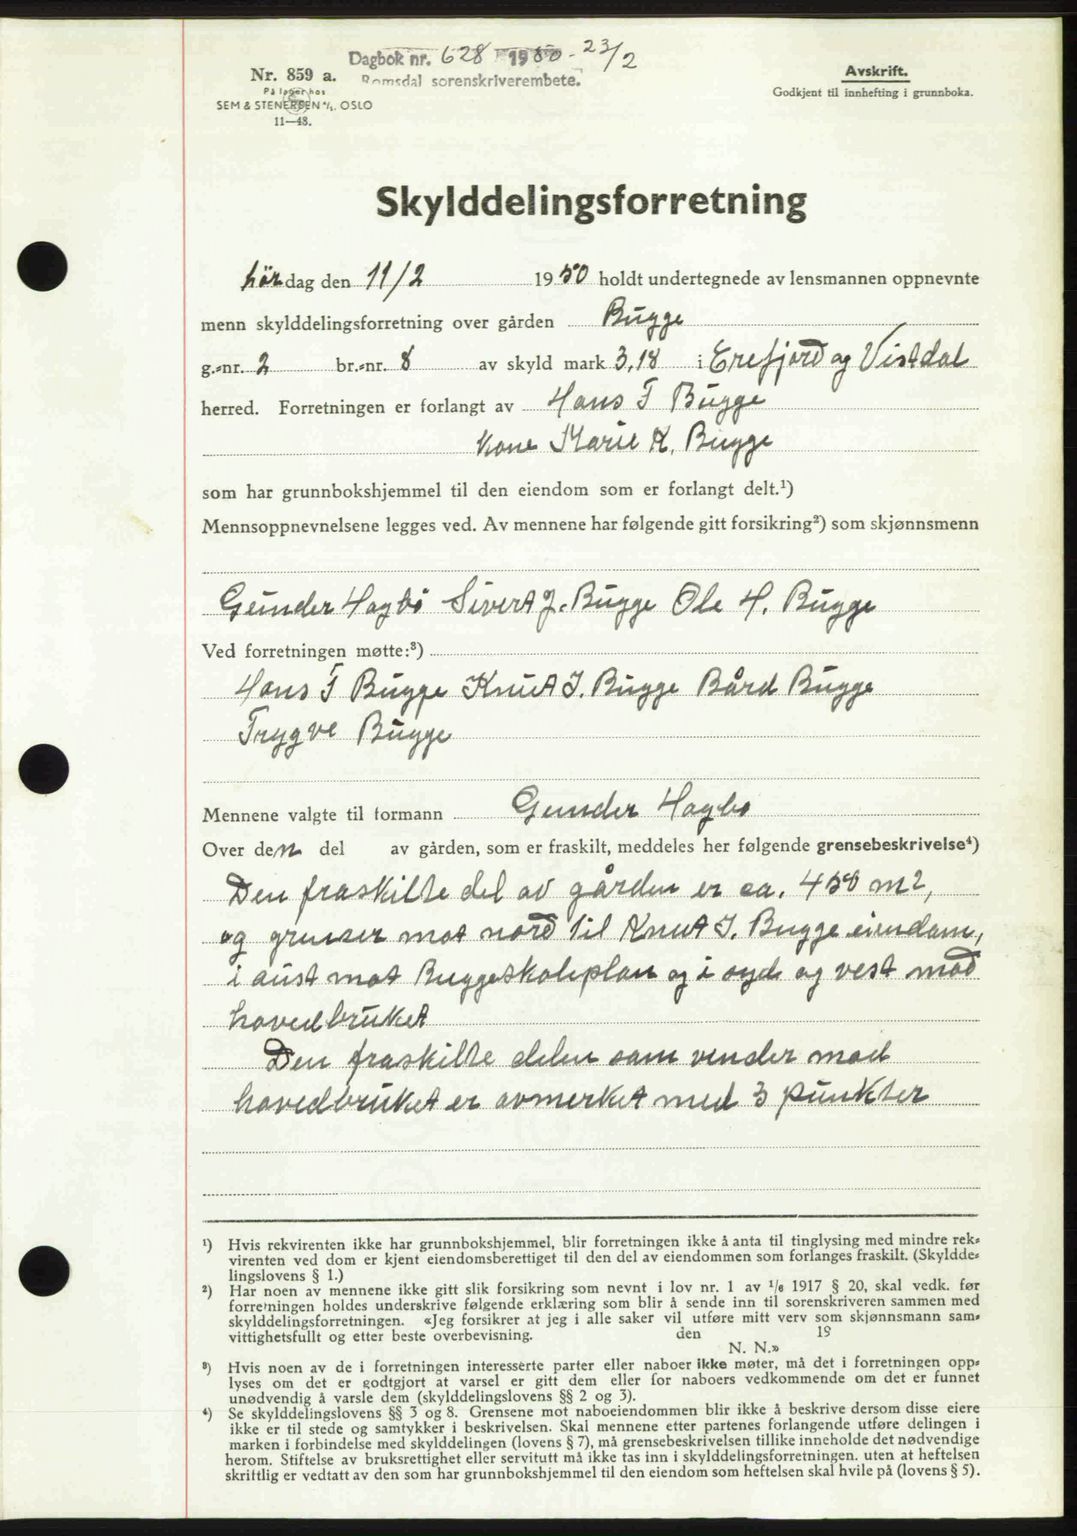 Dagbok nr. 628 1950 - 23/2
Romsdal sorenskriverembete.
Nr. 859 a.
På lager hos
SEM & STENERSEN A/S. OSLO
11—48.
Avskrift.
Godkjent til innhefting i grunnboka.
Skylddelingsforretning
lördag den 11/2 1950 holdt undertegnede av lensmannen oppnevnte
menn skylddelingsforretning over gården Bugge
g.-nr. 2 br.-nr. 8 av skyld mark 3,18 i Eresfjord og Vistdal
herred. Forretningen er forlangt av Hans T Bugge
kone Marie K. Bugge
som har grunnbokshjemmel til den eiendom som er forlangt delt.¹)
Mennsoppnevnelsene legges ved. Av mennene har følgende gitt forsikring²) som skjønnsmenn
Gunder Hagbö Sivert J. Bugge Ole H. Bugge
Ved forretningen møtte:³)
Hans T Bugge Knut J. Bugge Bård Bugge
Trygve Bugge
Mennene valgte til formann Gunder Hagbö
Over den del av gården, som er fraskilt, meddeles her følgende grensebeskrivelse⁴)
Den fraskilte del av gården er ca. 450 m2,
og grenser mot nord til Knut J. Bugge eiendom,
i aust mot Buggeskoleplan og i syd og vest mod
hovedbruket
Den fraskilte delen som vender mod
hovedbruket er avmerket med 3 punkter
¹) Hvis rekvirenten ikke har grunnbokshjemmel, blir forretningen ikke å anta til tinglysing med mindre rek-
virenten ved dom er kjent eiendomsberettiget til den del av eiendommen som forlanges fraskilt. (Skyldde-
lingslovens § 1.)
²) Har noen av mennene ikke gitt slik forsikring som nevnt i lov nr. 1 av 1/6 1917 § 20, skal vedk. før
forretningen holdes underskrive følgende erklæring som blir å sende inn til sorenskriveren sammen med
skylddelingsforretningen. «Jeg forsikrer at jeg i alle saker vil utføre mitt verv som skjønnsmann sam-
vittighetsfullt og etter beste overbevisning. den 19
N. N.»
³) Hvis noen av de i forretningen interesserte parter eller naboer ikke møter, må det i forretningen opp-
lyses om det er godtgjort at varsel er gitt dem eller for naboers vedkommende om det er funnet
unødvendig å varsle dem (skylddelingslovens §§ 2 og 3).
⁴) Se skylddelingslovens §§ 3 og 8. Grensene mot naboeiendommen blir ikke å beskrive dersom disse eiere
ikke er til stede og samtykker i beskrivelsen. Skal mennene etter partenes forlangende utføre delingen i
marken i forbindelse med skylddelingen (lovens § 7), må grensebeskrivelsen tillike inneholde det nødvendige
herom. Stiftelse av bruksrettighet eller servitutt må ikke tas inn i skylddelingsforretningen, uten at heftelsen
skriftlig er vedtatt av den som har grunnbokshjemmel til den eiendom som heftelsen skal hvile på (lovens § 5).